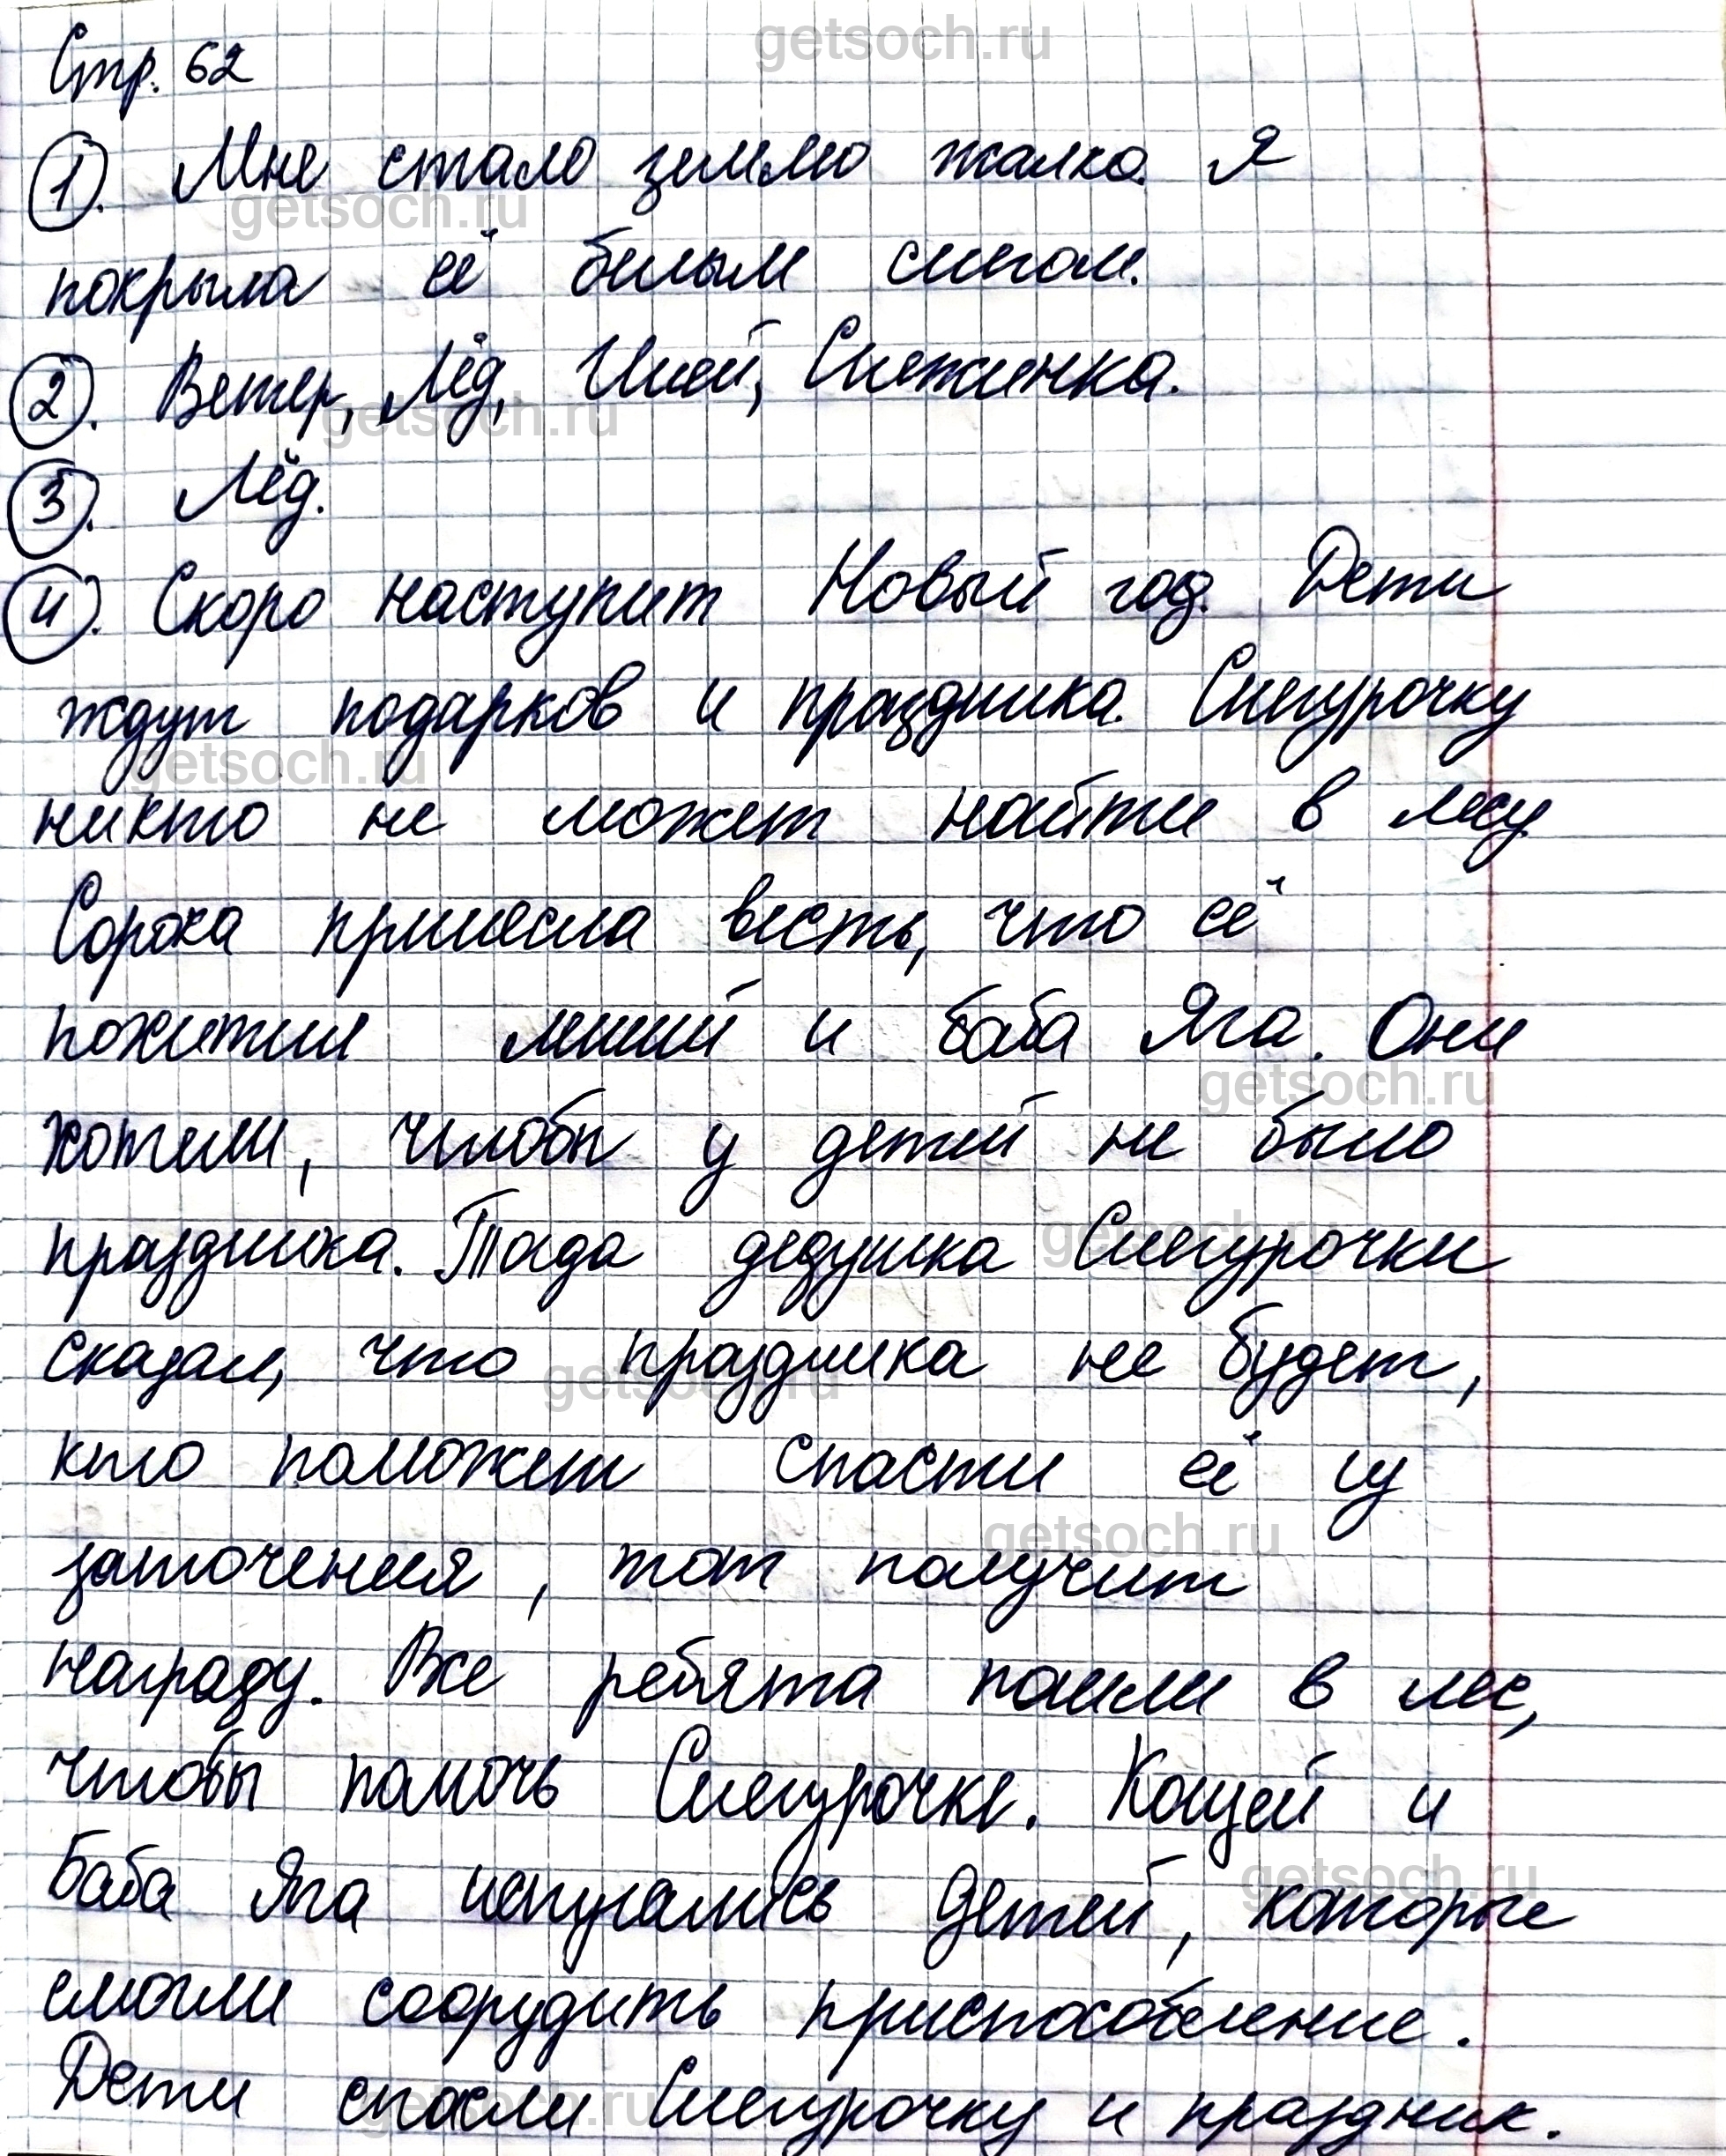 getsoch.ru
Стр. 62
1. Мне стало землю жалко. Я
getsoch.ru
покрыла её белым снегом.
2. Ветер, Лёд, Иней, Снежинка.
getsoch.ru
3. Лёд.
4. Скоро наступит Новый год. Дети
ждут подарков и праздника. Снегурочку
getsoch.ru
никто не может найти в лесу
Сорока принесла весть, что её
похитили леший и баба Яга. Они
getsoch.ru
хотели, чтобы у детей не было
праздника. Тогда дедушка Снегурочки
getsoch.ru
сказал, что праздника не будет,
getsoch.ru
кто поможет спасти её из
заточения, тот получит
getsoch.ru
награду. Все ребята пошли в лес,
чтобы помочь Снегурочке. Кощей и
Баба Яга испугались детей, которые
getsoch.ru
смогли соорудить приспособление.
Дети спасли Снегурочку и праздник.
getsoch.ru